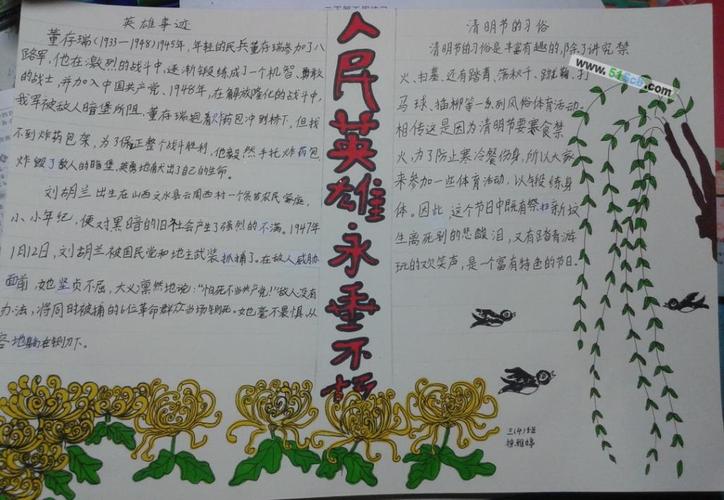 英雄事迹
董存瑞(1933—1948)1945年,年轻的民兵董存瑞参加了八
路军,他在激烈的战斗中,逐渐锻练成了一个机智、勇敢
的战士,并加入中国共产党、1948年,在解放隆化的战斗中,
我军被敌人暗堡所阻,董存瑞抱着炸药包冲到桥下,但找
不到炸药包架,为了保证整个战斗胜利,他毅然手托炸药包,
炸毁了敌人的暗堡,英勇地献出了自己的生命。
刘胡兰出生在山西文水县云周西村一个贫苦农民家庭,
小小年纪,便对黑暗的旧社会产生了强烈的不满。1947年
1月12日,刘胡兰被国民党和地主武装抓捕了。在敌人威胁
面前,她坚贞不屈,大义凛然地说:“怕死不当共产党!”敌人没有
办法,将同时被捕的6位革命群众当场铡死。她毫不畏惧,从
容地躺在铡刀下。
人民英雄永垂不朽
清明节的习俗
清明节的习俗是丰富有趣的,除了讲究禁
火、扫墓,还有踏青、荡秋千、蹴鞠、打
马球、插柳等一系列风俗体育活动。
相传这是因为清明节要寒食禁
火,为了防止寒冷餐伤身,所以大家
来参加一些体育活动,以锻练身
体。因此,这个节日中既有祭扫新坟
生离死别的悲酸泪,又有踏青游
玩的欢笑声,是一个富有特色的节日。
三(4)班
www.51Scb.com